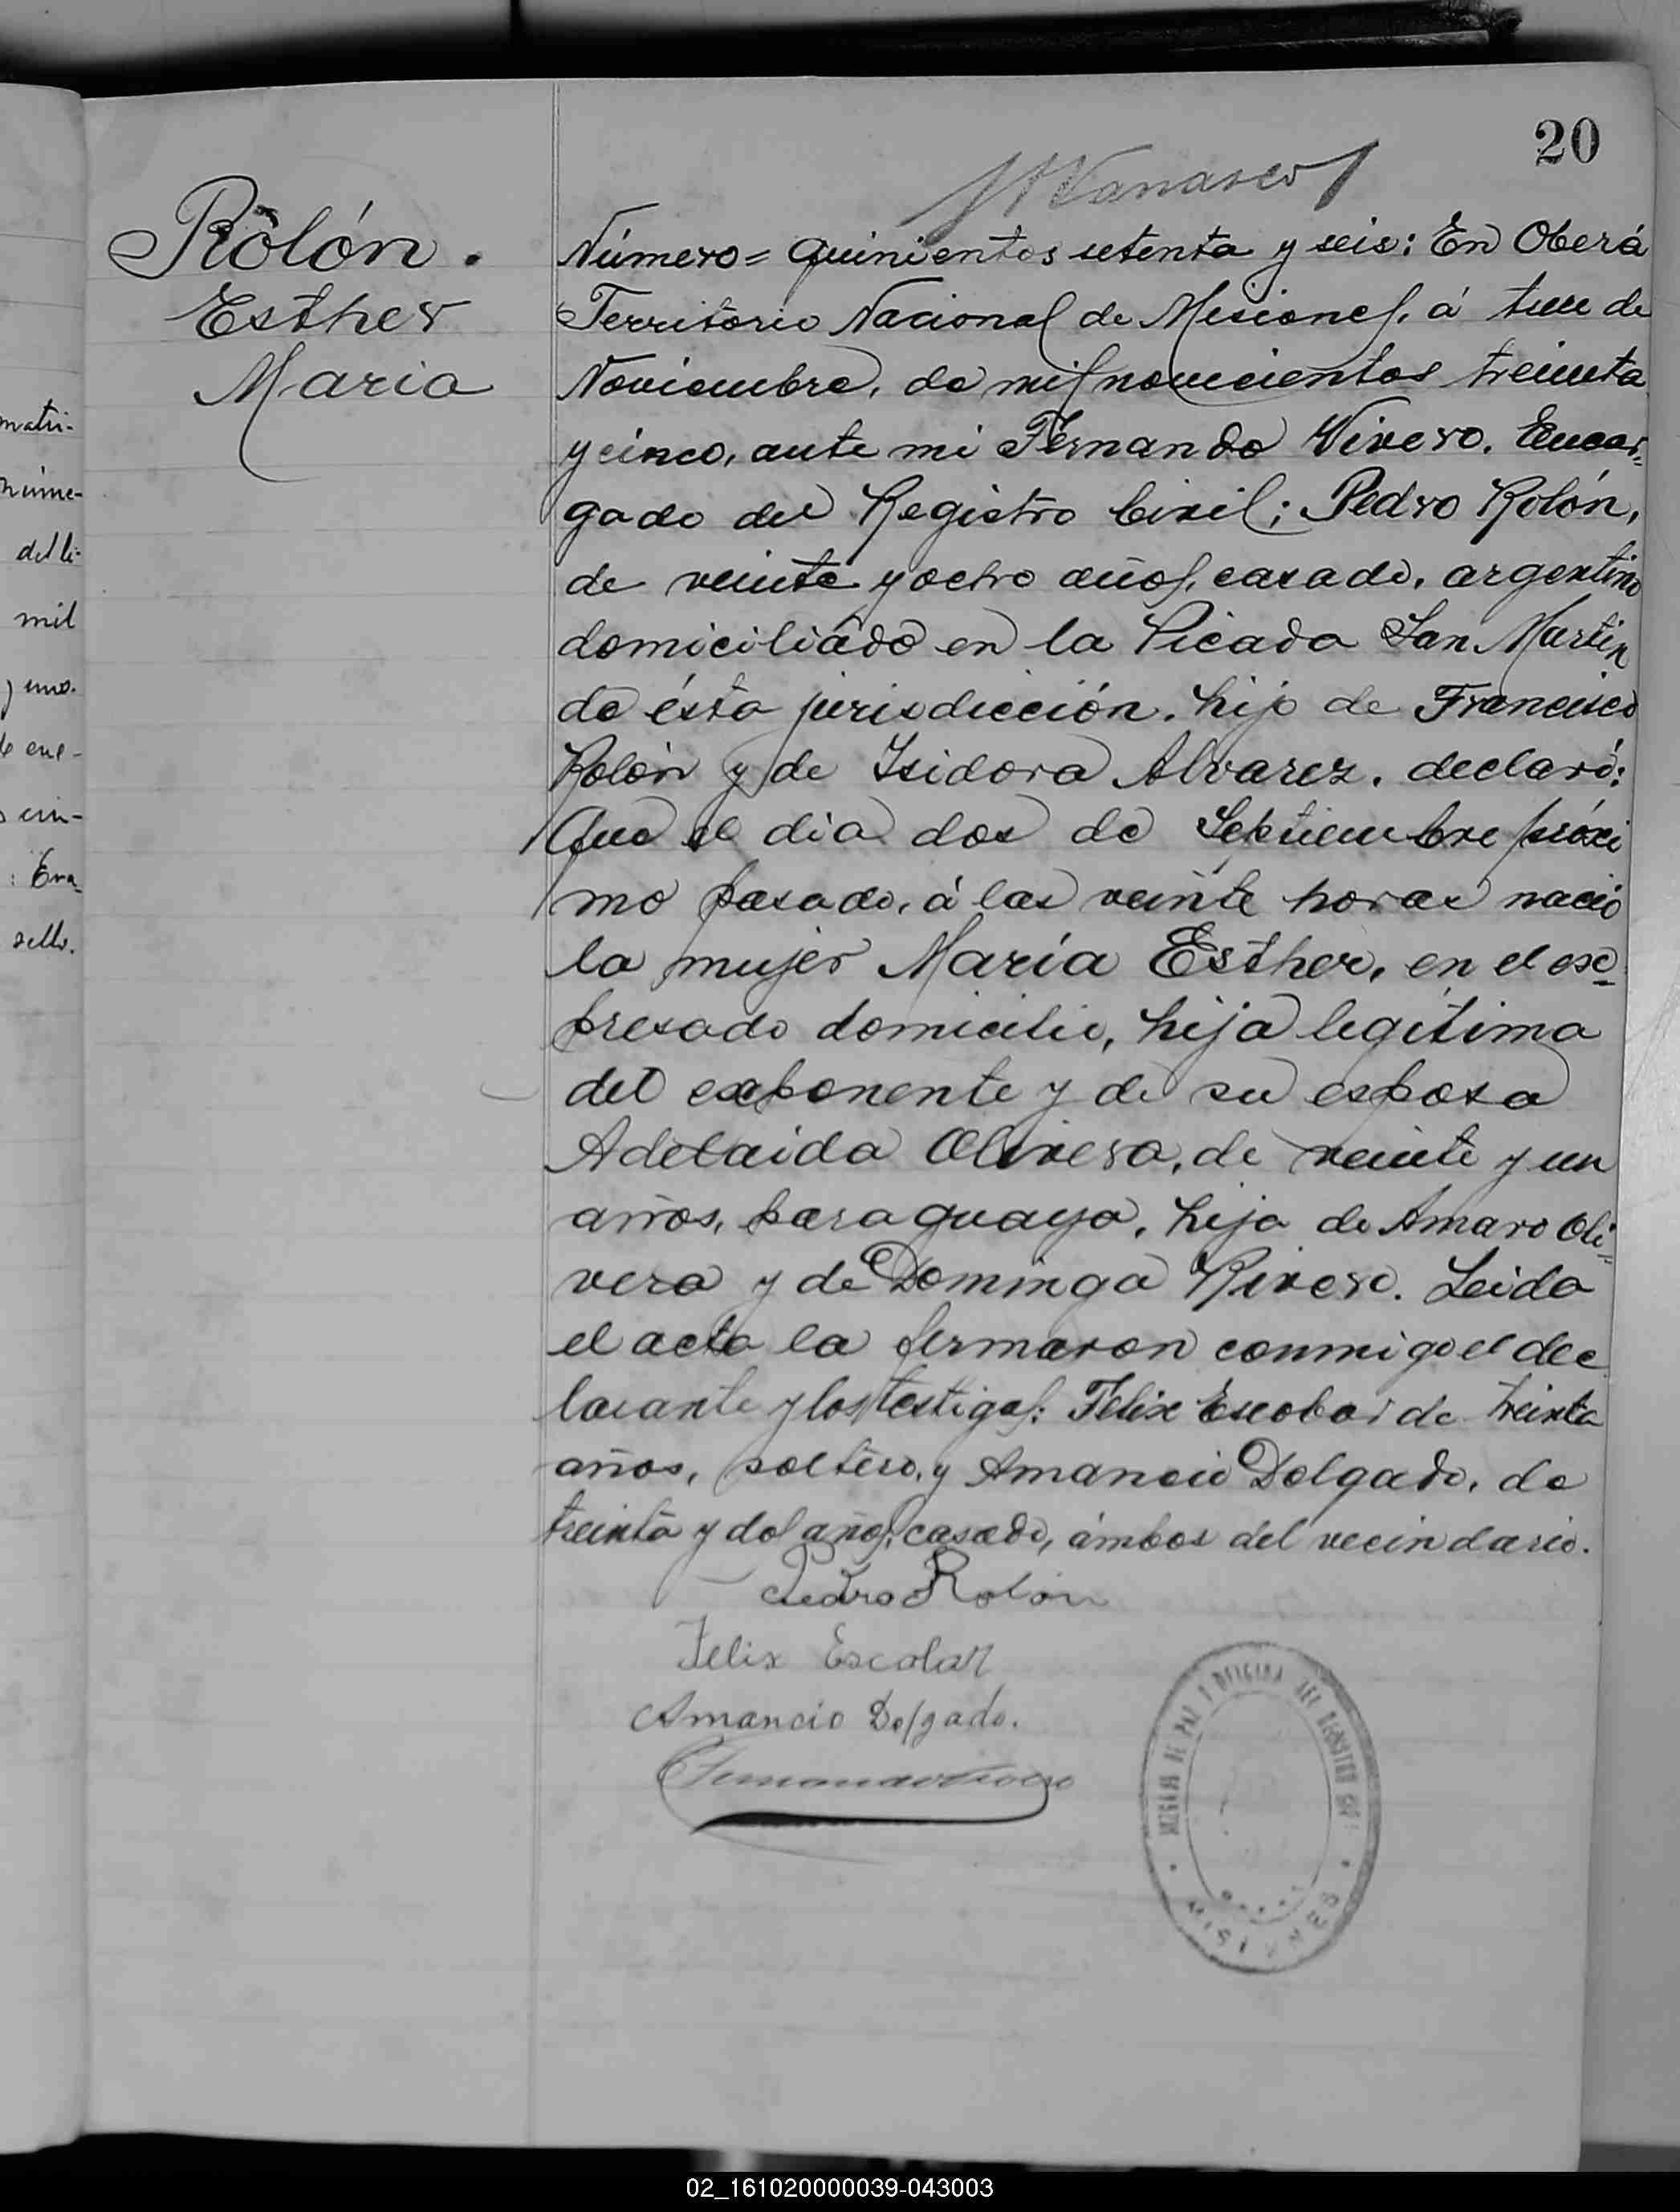 20
Rolón.
Esther
Maria
Número = quinientos setenta y seis: En Oberá
Territorio Nacional de Misiones, á tres de
Noviembre, de mil novecientos treinta
y cinco, ante mi Fernando Vivero, Encar=
gado del Registro Civil; Pedro Rolón,
de veinte y ocho años, casado, argentino
domiciliado en la Picada San Martin
de ésta jurisdicción, hijo de Francisco
Rolón y de Isidora Alvarez, declaró:
Que el dia dos de Septiembre próxi
mo pasado, á las veinte horas nació
la mujer María Esther, en el ex
presado domicilio, hija legítima
del exponente y de su esposa
Adelaida Olivera, de veinte y un
años, paraguaya, hija de Amaro Oli=
vera y de Dominga Rivero. Leida
el acta la firmaron conmigo el dec
larante y los testigos: Felix Escobar de treinta
años, soltero, y Amancio Delgado, de
treinta y dos años, casado, ámbos del vecindario.
Pedro Rolón
Felix Escobar
Amancio Delgado.
JUZGADO DE PAZ Y OFICINA DEL REGISTRO
MISIONES
matri-
núme-
del li-
mil
y uno.
de ene-
cin-
sello.
02_161020000039-043003